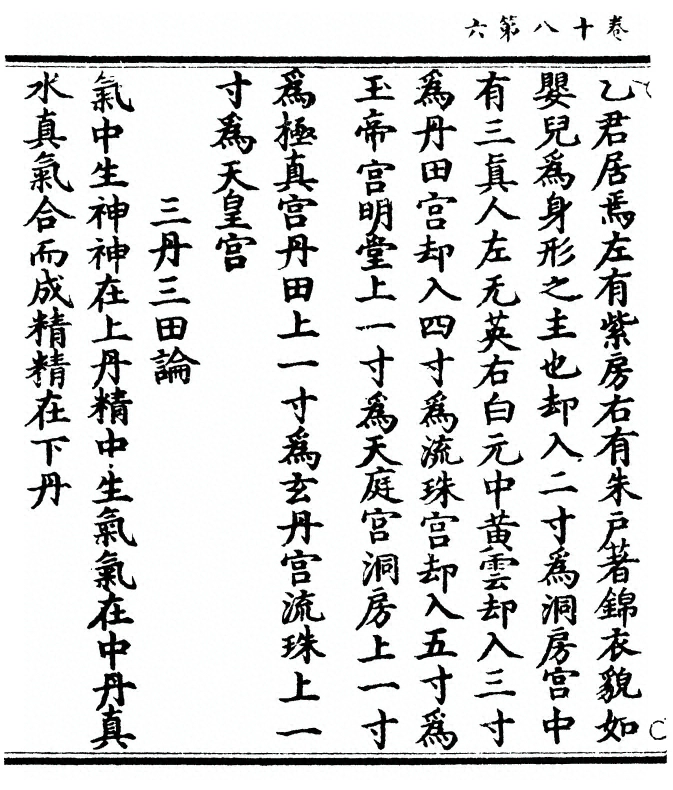 卷十八第六
乙君居焉左有紫房右有朱戶著錦衣貌如
嬰兒為身形之主也却入二寸為洞房宮中
有三眞人左无英右白元中黃雲却入三寸
為丹田宮却入四寸為流珠宮却入五寸為
玉帝宮明堂上一寸為天庭宮洞房上一寸
為極真宮丹田上一寸為玄丹宮流珠上一
寸為天皇宮
三丹三田論
氣中生神神在上丹精中生氣氣在中丹真
水真氣合而成精精在下丹